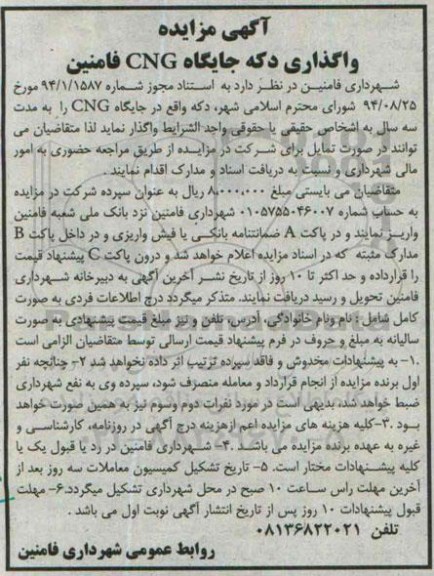 آگهی مزایده
واگذاری دکه جایگاه CNG فامنین
شهرداری فامنین در نظر دارد به استناد مجوز شماره ۹۴/۱/۱۵۸۷ مورخ
۹۴/۰۸/۲۵ شورای محترم اسلامی شهر، دکه واقع در جایگاه CNG را به مدت
سه سال به اشخاص حقیقی یا حقوقی واجد الشرایط واگذار نماید لذا متقاضیان می
توانند در صورت تمایل برای شرکت در مزایده از طریق مراجعه حضوری به امور
مالی شهرداری و نسبت به دریافت اسناد و مدارک اقدام نمایند .
متقاضیان می بایستی مبلغ ۸,۰۰۰,۰۰۰ ریال به عنوان سپرده شرکت در مزایده
به حساب شماره ۰۱۰۵۷۵۵۰۴۶۰۰۷ شهرداری فامنین نزد بانک ملی شعبه فامنین
واریز نمایند و در پاکت A ضمانتنامه بانکی یا فیش واریزی و در داخل پاکت B
مدارک مثبته که در اسناد مزایده اعلام خواهد شد و درون پاکت C پیشنهاد قیمت
را قرارداده و حد اکثر تا ۱۰ روز از تاریخ نشر آخرین آگهی به دبیرخانه شهرداری
فامنین تحویل و رسید دریافت نمایند. متذکر میگردد درج اطلاعات فردی به صورت
کامل شامل : نام ونام خانوادگی، آدرس، تلفن و نیز مبلغ قیمت پیشنهادی به صورت
سالیانه به مبلغ و حروف در فرم پیشنهاد قیمت ارسالی توسط متقاضیان الزامی است
.۱- به پیشنهادات مخدوش و فاقد سپرده ترتیب اثر داده نخواهد شد ۲- چنانچه نفر
اول برنده مزایده از انجام قرارداد و معامله منصرف شود، سپرده وی به نفع شهرداری
ضبط خواهد شد، بدیهی است در مورد نفرات دوم وسوم نیز به همین صورت خواهد
بود .۳-کلیه هزینه های مزایده اعم ازهزینه درج آگهی در روزنامه، کارشناسی و
غیره به عهده برنده مزایده می باشد .۴- شهرداری فامنین در رد یا قبول یک یا
کلیه پیشنهادات مختار است. ۵- تاریخ تشکیل کمیسیون معاملات سه روز بعد از
آخرین مهلت راس ساعت ۱۰ صبح در محل شهرداری تشکیل میگردد.۶- مهلت
قبول پیشنهادات ۱۰ روز پس از تاریخ انتشار آگهی نوبت اول می باشد .
تلفن ۰۸۱۳۶۸۲۲۰۲۱
روابط عمومی شهرداری فامنین